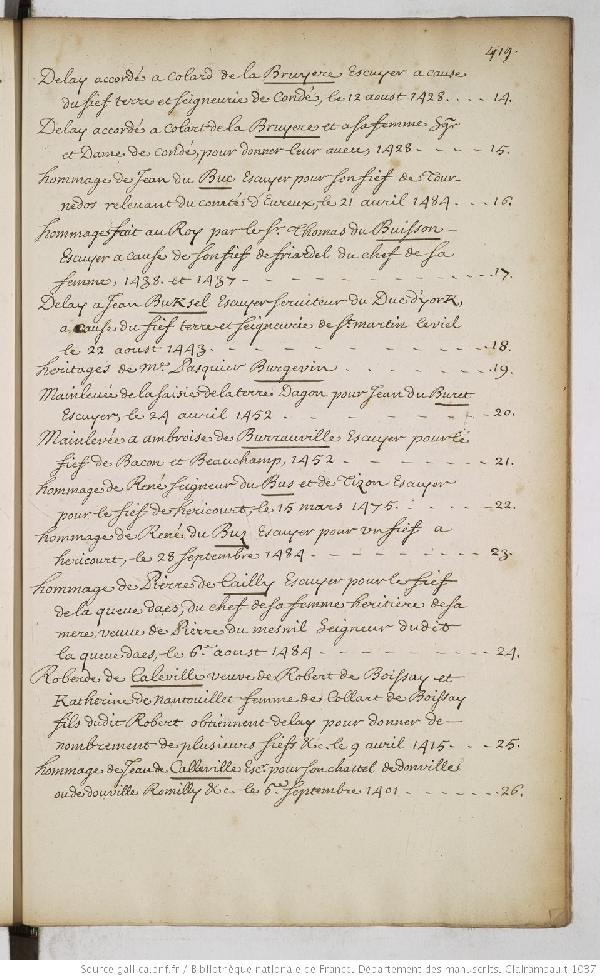 419.
Delay accordé a Colard de la Bruyere Escuyer a cause
du fief terre et seigneurie de Condé, le 12 aoust 1428. . . . 14.
Delay accordé a Colart de la Bruyere et a sa femme Sgr
et Dame de Condé, pour donner leur aveu, 1428 - - - - - 15.
hommage de Jean du Buc Escuyer pour son fief de Tour-
nedos relevant du comté d'Evreux, le 21 avril 1484 . . . 16.
hommage fait au Roy par le Sr. Thomas du Buisson -
Escuyer a cause de son fief de friardel du chef de sa
femme, 1438. et 1437 - - - - - - - - 17.
Delay a Jean Buksel Escuyer serviteur du Duc d'york,
a cause du fief terre et seigneurie de St. martin le viel
le 22 aoust 1443. - - - - - - - - 18.
heritages de Me. Pasquier Burgevin . - - - - - 19.
Mainlevée de la saisie de la terre Dagon pour Jean du Buret
Escuyer, le 24 avril 1452 . - - - - - - 20.
Mainlevée a ambroise de Burrauville Escuyer pour le
fief de Bacon et Beauchamp, 1452 - - - - - - 21.
hommage de René seigneur du Bus et de Tizon Escuyer
pour le fief de hericourt, le 15 mars 1475 . - - - - 22.
hommage de René du Buz Escuyer pour un fief a
hericourt, le 28 septembre 1484 - - - - - - 23.
hommage de Pierre de Cailly Escuyer pour le fief
de la queue daes, du chef de sa femme heritiere de sa
mere, veuve de Pierre du mesnil Seigneur dudit
la queue daes, le 6e. aoust 1484 - - - - - - 24.
Roberde de Caleville veuve de Robert de Boissay et
Katherine de nantouillet femme de Collart de Boissay
fils dudit Robert obtiennent delay pour donner de-
nombrement de plusieurs fiefs &c. le 9 avril 1415 - - - 25.
hommage de Jean de Calleville Escr. pour son chastel de donville
ou de douville Romilly &c. le 6e. septembre 1401 - - - - 26.
Source gallica.bnf.fr / Bibliothèque nationale de France. Département des manuscrits. Clairambault 1037